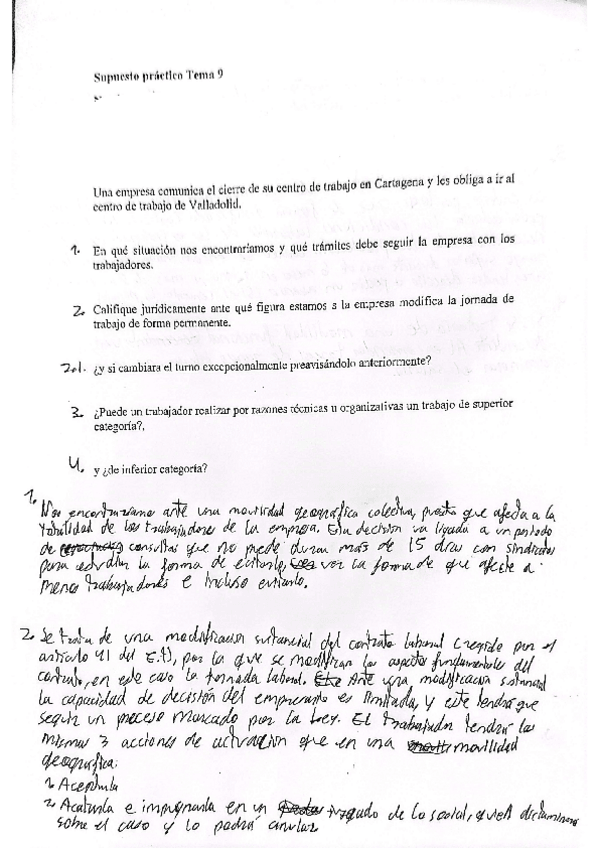 Supuesto práctico Tema 9
Una empresa comunica el cierre de su centro de trabajo en Cartagena y les obliga a ir al
centro de trabajo de Valladolid.
1. En qué situación nos encontraríamos y qué trámites debe seguir la empresa con los
trabajadores.
2. Califique jurídicamente ante qué figura estamos s la empresa modifica la jornada de
trabajo de forma permanente.
2.1. ¿y si cambiara el turno excepcionalmente preavisándolo anteriormente?
3. ¿Puede un trabajador realizar por razones técnicas u organizativas un trabajo de superior
categoría?,
4. y ¿de inferior categoría?
1. Nos encontraríamos ante una movilidad geográfica colectiva, puesto que afecta a la
totalidad de los trabajadores de la empresa. Esta decisión va ligada a un periodo
de consultas que no puede durar más de 15 días con sindicatos
para estudiar la forma de evitarlo, ver la forma de que afecte a
menos trabajadores e incluso evitarlo.
2. Se trata de una modificación sustancial del contrato laboral (regido por el
artículo 41 del E.T), por la que se modifican los aspectos fundamentales del
contrato, en este caso la jornada laboral. Ante una modificación sustancial
la capacidad de decisión del empresario es limitada, y este tendrá que
seguir un proceso marcado por la ley. El trabajador tendrá las
mismas 3 acciones de actuación que en una movilidad
geográfica:
1. Aceptarla
2. Acatarla e impugnarla en un juzgado de lo social, quien dictaminará
sobre el caso y lo podrá anular